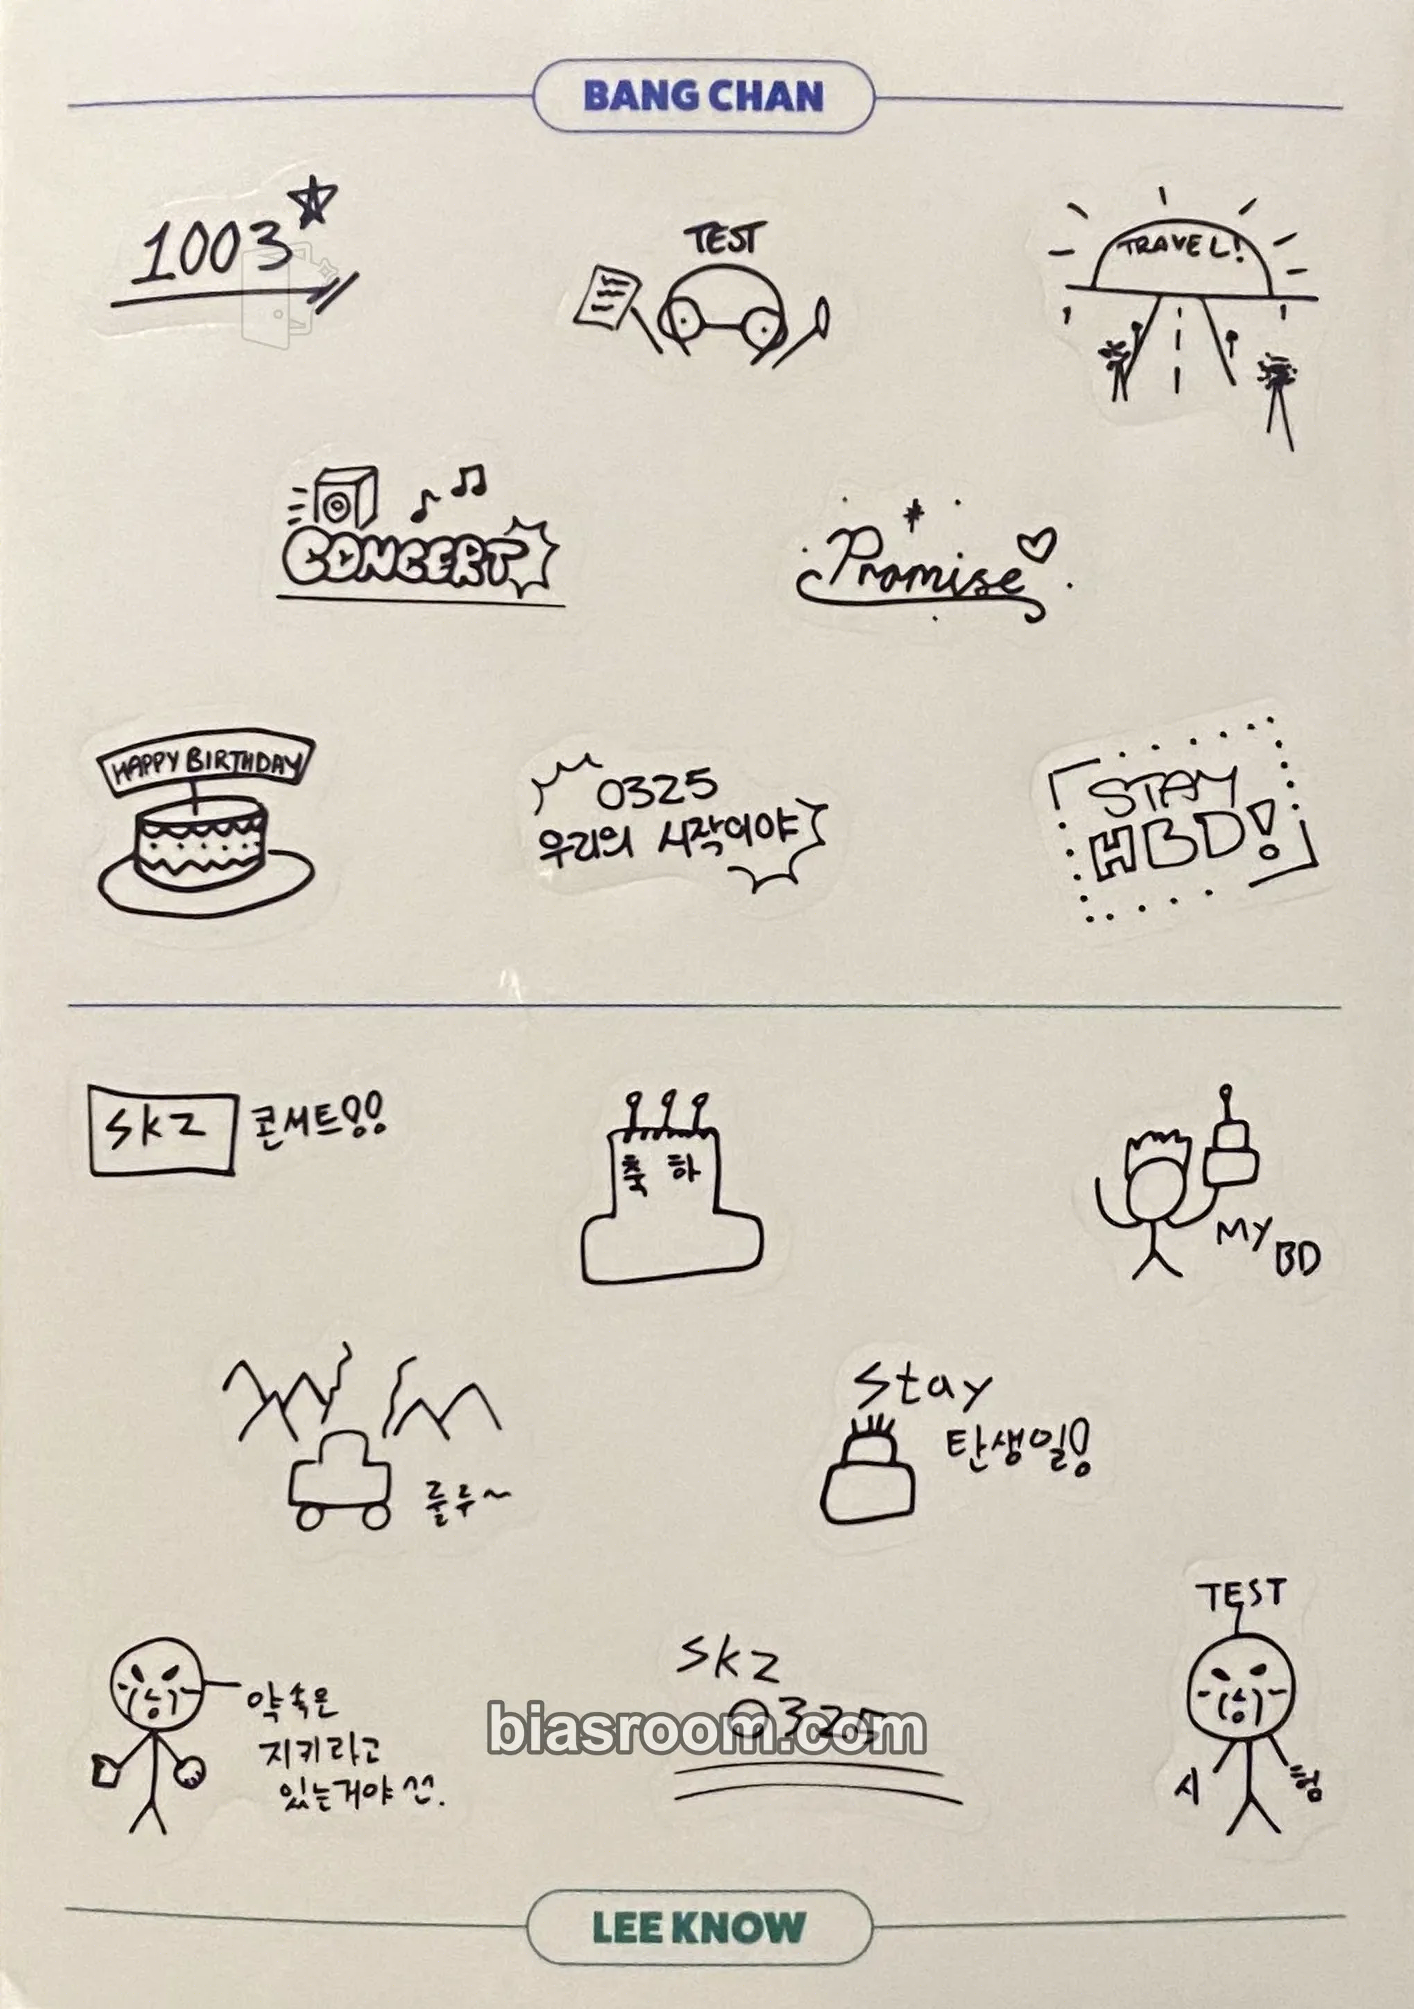 BANG CHAN
1003
TEST
TRAVEL!
CONCERT
Promise
HAPPY BIRTHDAY
0325
우리의 시작이야
STAY
HBD!
skz 콘서트!!
축하
MY
BD
룰루~
Stay
탄생일!
약속은
지키라고
있는거야 ^^.
skz
0325
biasroom.com
TEST
시 험
LEE KNOW